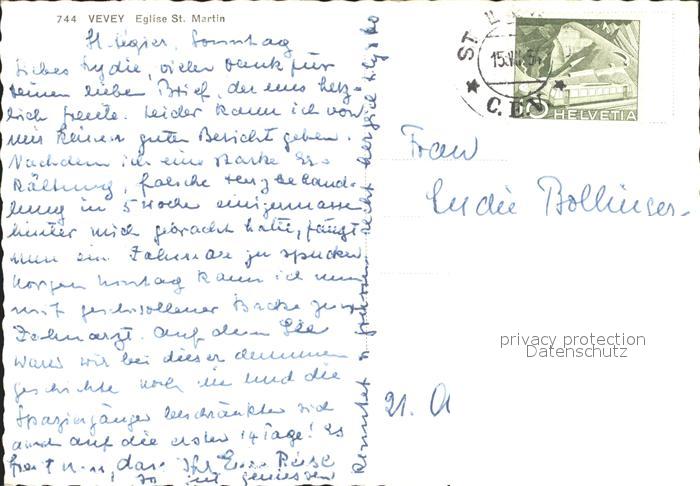 744 VEVEY Eglise St. Martin
St. Légier, Sonntag
Liebes Lydie, vielen Dank für
deinen lieben Brief, der uns herz-
lich freute. Leider kann ich von
mir keinen guten Bericht geben.
Nachdem ich eine starke Er-
kältung, falsche
in 5 Woche einigermassen
hinter mich gebracht hatte, fängt
nun ein Zahn an zu spucken
Morgen Montag kann ich nun
mit geschwollener Backe zum
Zahnarzt. Auf dem See
waren wir bei dieser dummen
geschichte noch nie und die
Spaziergänge beschränkten sich
auch auf die ersten 14 Tage! Es
freut uns, dass Ihr Eure Reise
so gut geniessen
konntet u grüssen recht herzlich
ST.
15.VII.
C.E.V
HELVETIA
Frau
Lydie Bollinger-
privacy protection
Datenschutz
21. A